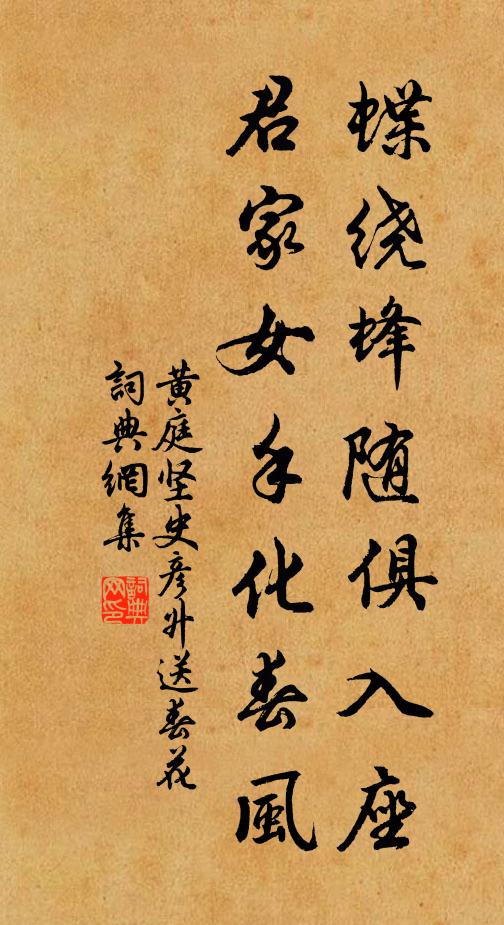 蝶绕蜂随俱入座
君家女手化春風
黄庭坚史彦升送春花
詞典網集
詞典網印